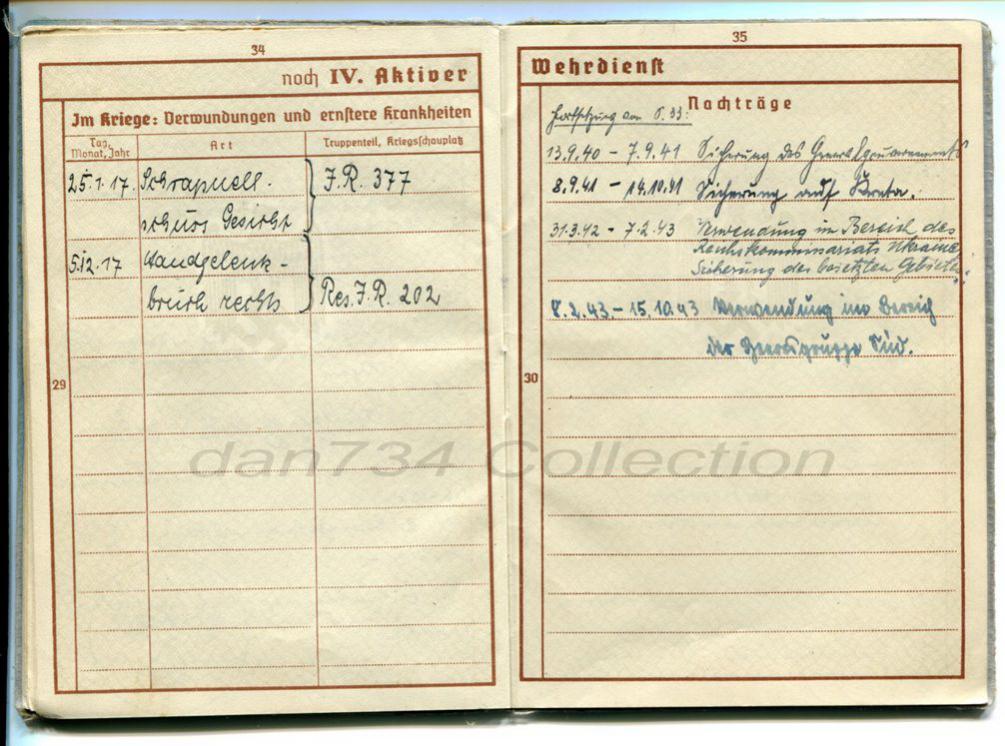 34
noch IV. Aktiver
Im Kriege: Verwundungen und ernstere Krankheiten
Tag, Monat, Jahr
Art
Truppenteil, Kriegsschauplatz
25.1.17. Schrapnell- J.R. 377
schuss Gesicht
5.12.17 Handgelenk-
bruch rechts Res. J.R. 202
29
35
Wehrdienst
Nachträge
Fortsetzung von S. 33:
13.9.40 - 7.9.41 Sicherung des Generalgouvernements
8.9.41 - 14.10.41 Sicherung auf Kreta.
31.3.42 - 7.2.43 Verwendung im Bereich des
Reichskommissariats Ukraine
Sicherung der besetzten Gebiete.
8.2.43. - 15.10.43 Verwendung im Bereich
der Heeresgruppe Süd.
30
dan734 Collection